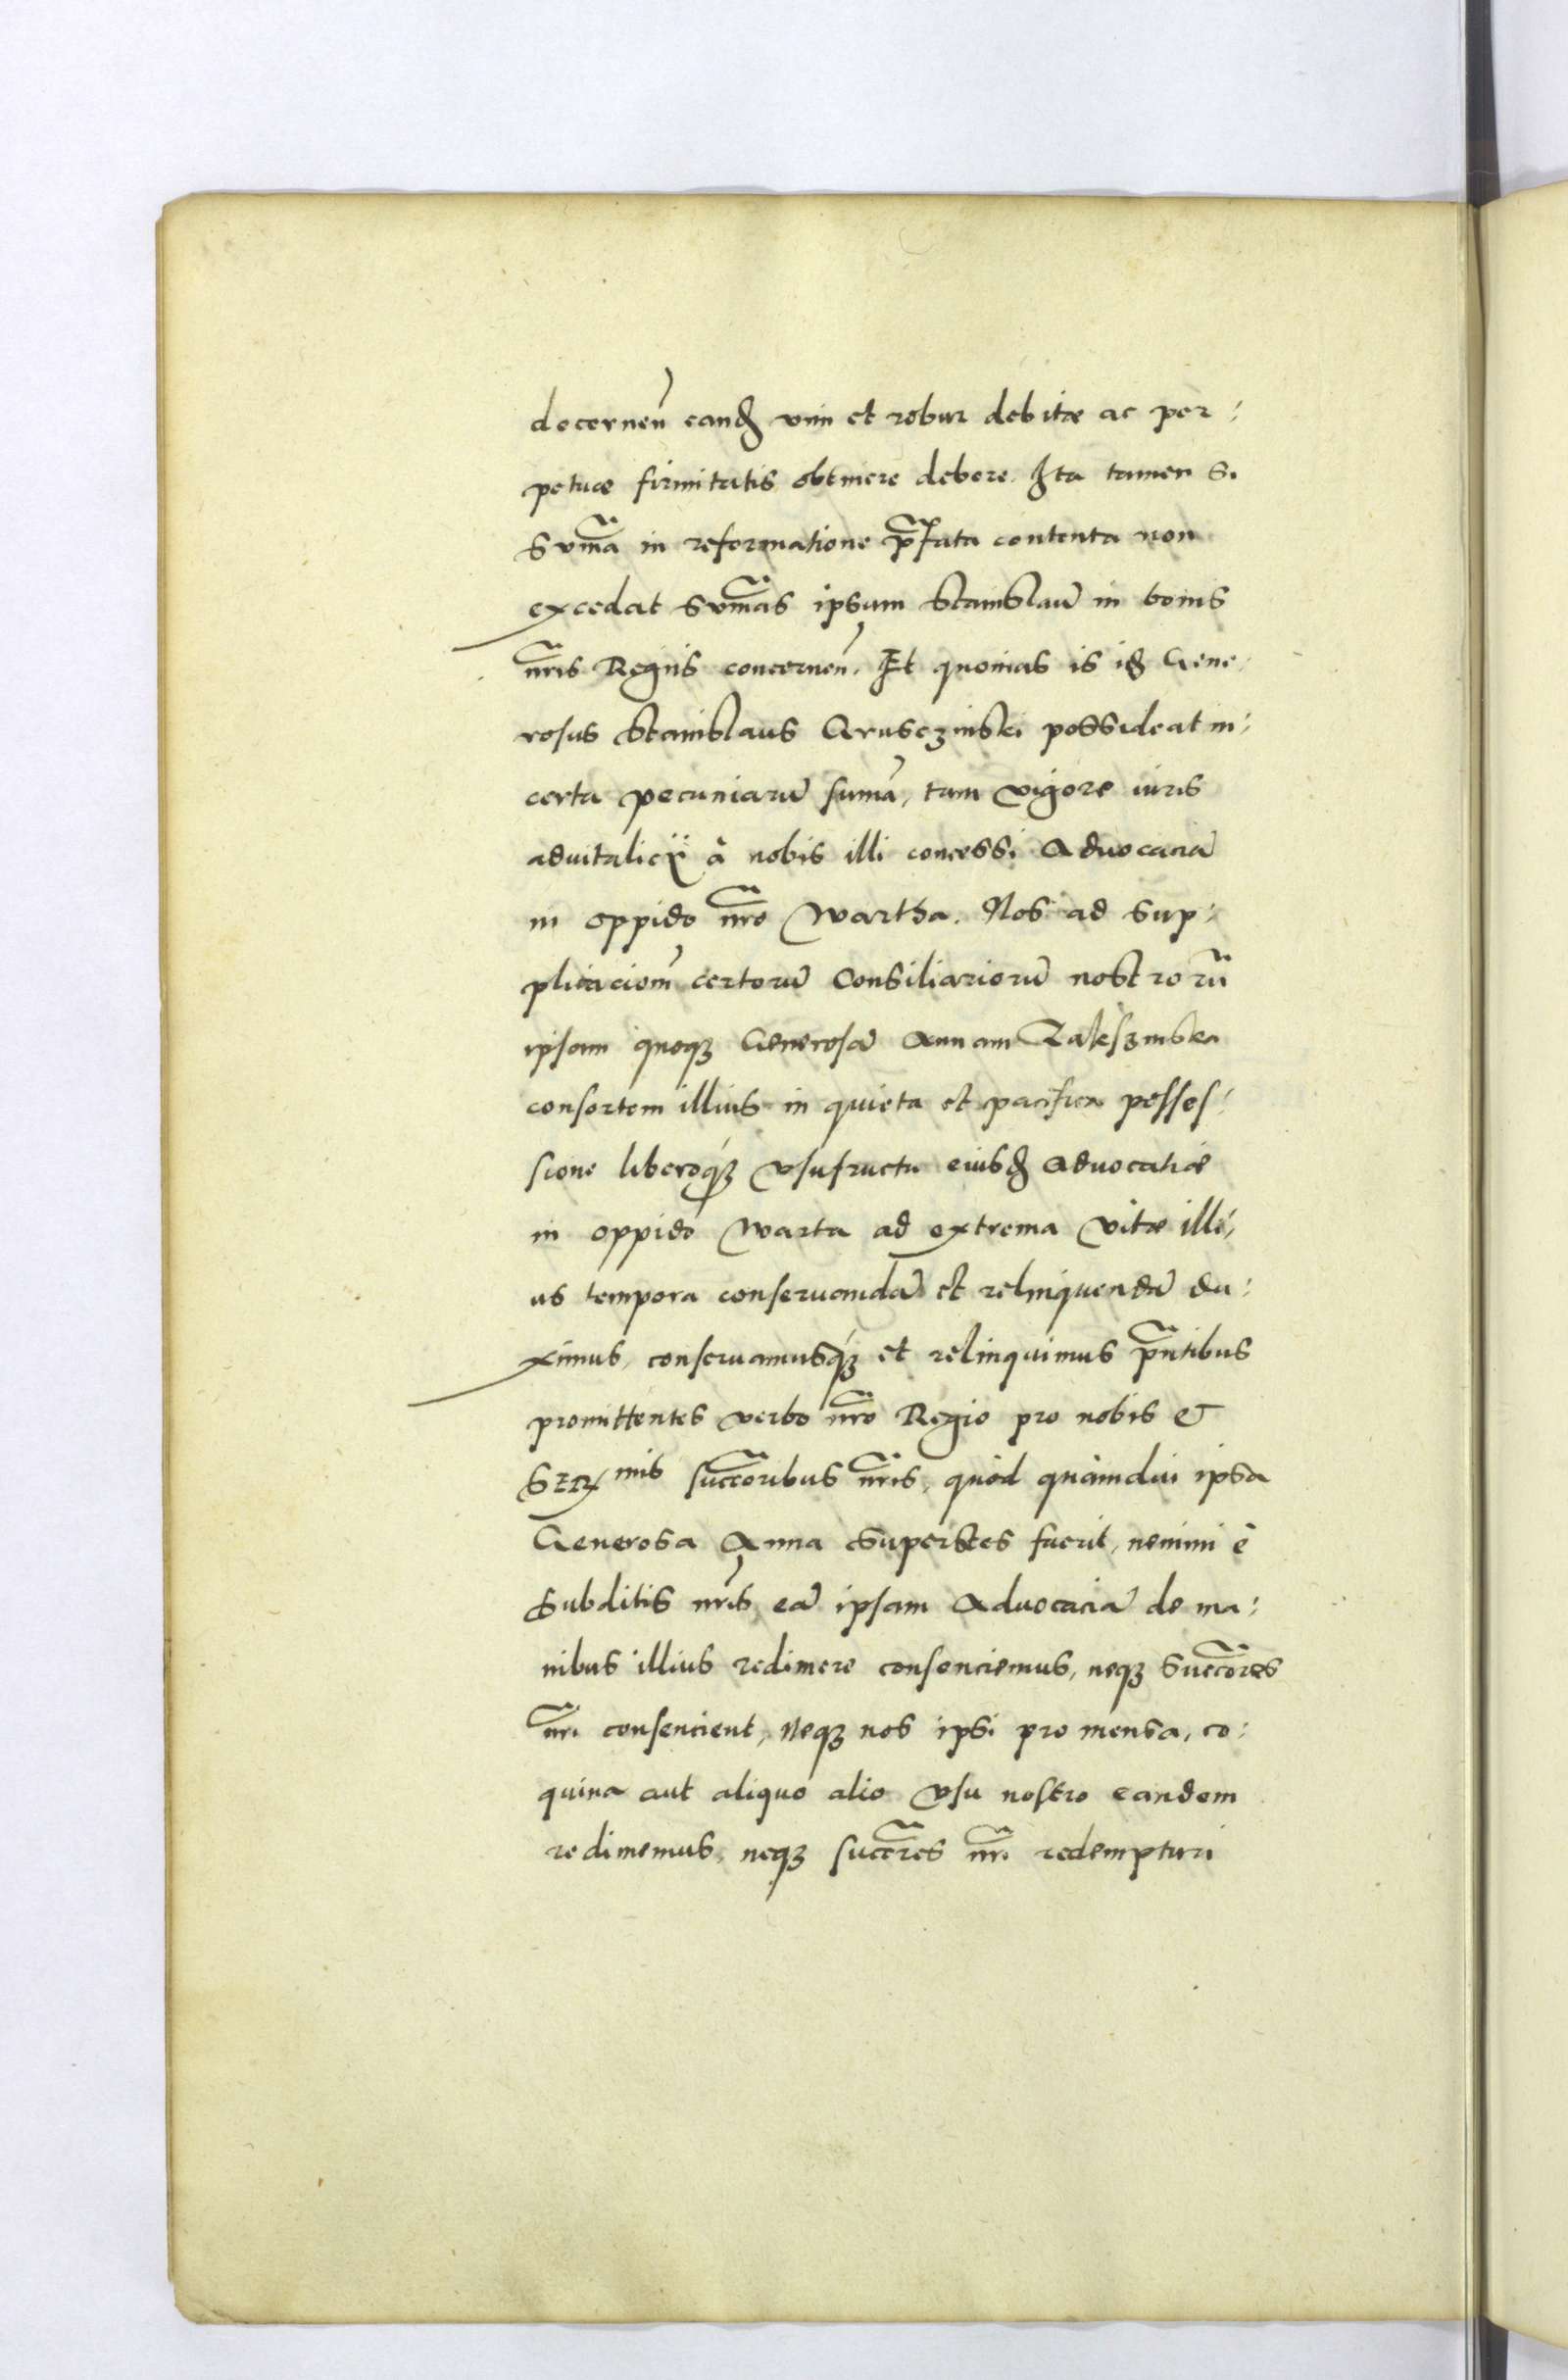 decernen̄ eand vim et robur debitæ ac per:
petuæ firmitatis obtinere debere. Ita tamen si
Sum̄a in reformatione p̄fata contenta non
excedat Sum̄as ipsum Stanislaū in bonis
nr̄is Regiis concernen̄. Et quonias is id Gene:
rosus Stanislaus Gruseʒinski possideat in:
certa pecuniarū sumā, tam vigore iuris
aduitalicii à nobis illi concessi Aduocaciā
in oppido nr̄o Wartha. Nos ad sup:
plicaciōm certorū Consiliariorū nostrorū
ipsam quoqꝫ Generosā Annam Zaleszinska
consortem illius in quieta et pacifica posses:
sione liberoqꝫ vsufructu eiusd Aduocatiæ
in oppido Warta ad extrema vitæ illi:
us tempora conseruandā et relinquendā du:
ximus, conseruamusqꝫ et relinquimus p̄ntibus
promittentes verbo nr̄o Regio pro nobis &
Ser mis succ̄oribus nr̄is, quòd quàmdiu ipsa
Generosa Anna superstes fuerit, nemini è
Subditis nr̄is, eā ipsam Aduocaciā de ma:
nibus illius redimere consenciemus, neqꝫ Succ̄ores
nr̄i consencient, Neqꝫ nos ipsi pro mensa, co:
quina aut aliquo alio vsu nostro eandem
redimemus, neqꝫ succ̄res nr̄i redempturi